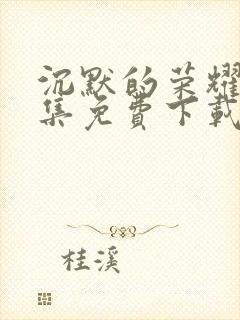 沉默的荣耀
集免費下載
桂溪